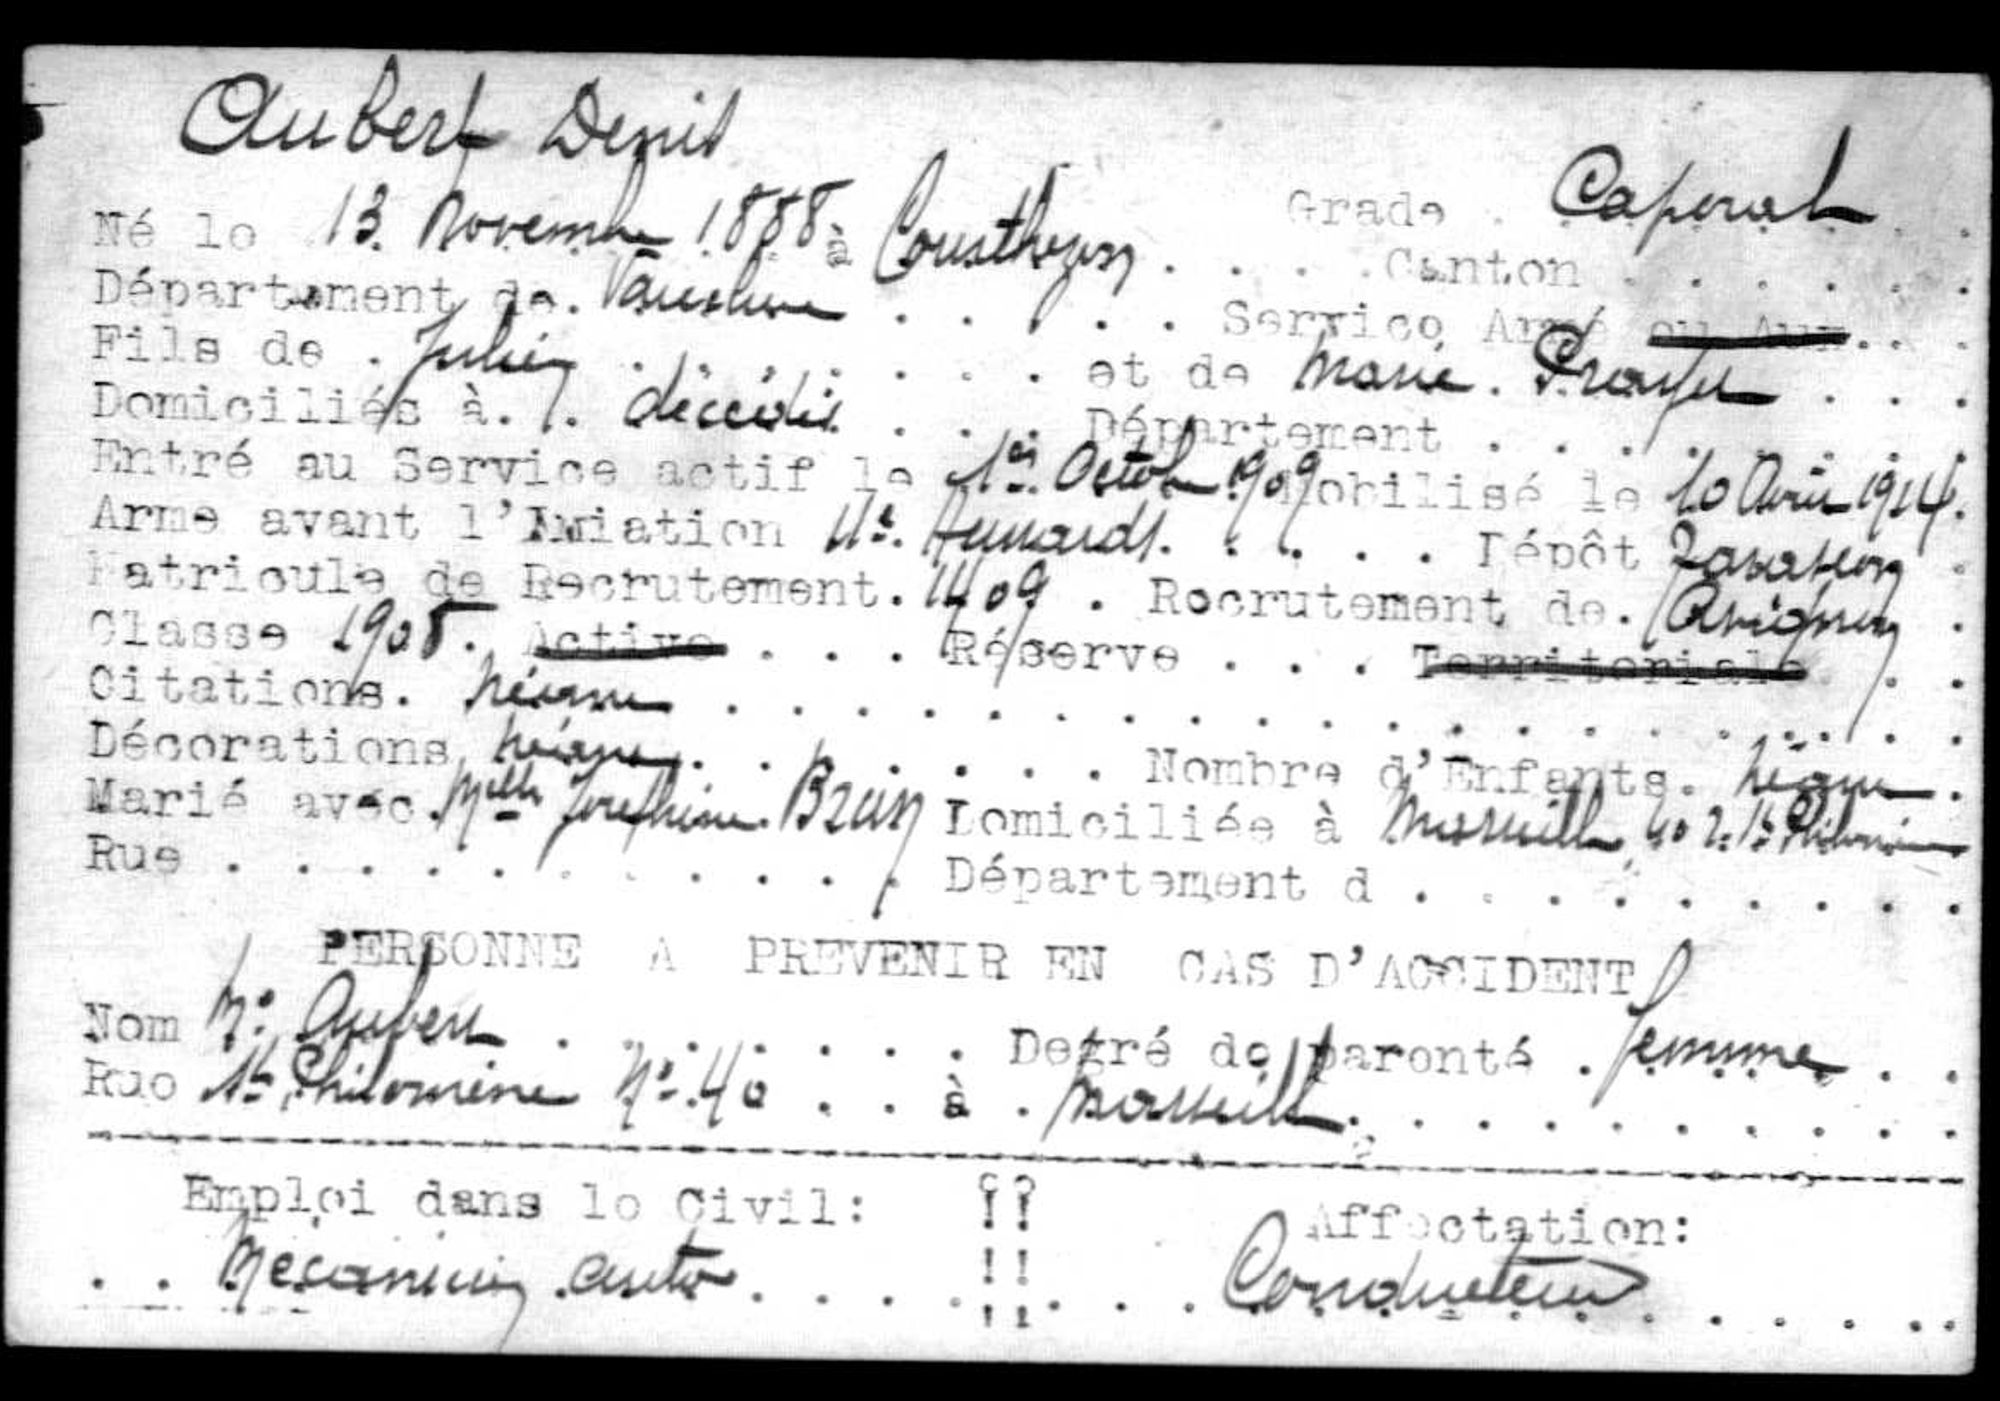 Aubert Denis
Grade . Caporal
Né le 13 Novembre 1888 à Courthezon . . . . Canton . . . . . .
Département de. Vaucluse . . . . . Service Armé ou Aux. .
Fils de . Julien . . . . . . . et de Marie . . . .
Domiciliés à. . décédés . . . Département . . . . . . . .
Entré au Service actif le 1er Octob 1909 Mobilisé le 10 Août 1914.
Arme avant l'Aviation 11e. Hussards. . . . . Dépôt Tarascon .
Matricule de Recrutement. 1409 . Recrutement de. Avignon .
Classe 1908. Active . . . Réserve . . . Territoriale . .
Citations. Néant . . . . . . . . . . . . . . . . . . .
Décorations Néant . . . . . . . Nombre d'Enfants. Néant .
Marié avec. Melle Josephine Domiciliée à Marseille 40 r. Ste Philomène
Rue . . . . . . . . . . . Département d . . . . . . . . .
PERSONNE A PREVENIR EN CAS D'ACCIDENT
Nom Me Aubert . . . . . . . Degré de parenté . femme . .
Rue Ste Philomène No. 40 . . à . Marseille . . . . . . . . . .
Emploi dans le Civil: !! Affectation:
. . Mécanicien auto . . . . . !! . . . Conducteur . . . . . .
!!